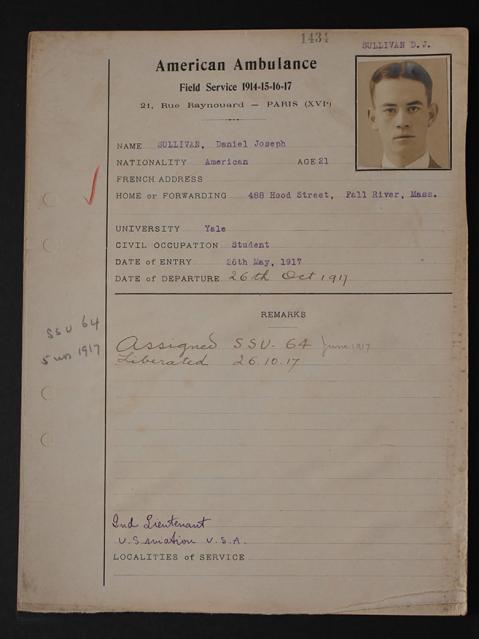 1434
SULLIVAN D.J.
American Ambulance
Field Service 1914-15-16-17
21, Rue Raynouard — PARIS (XVIe)
NAME SULLIVAN, Daniel Joseph
NATIONALITY American AGE 21
FRENCH ADDRESS
HOME or FORWARDING 488 Hood Street, Fall River, Mass.
UNIVERSITY Yale
CIVIL OCCUPATION Student
DATE of ENTRY 26th May, 1917
DATE of DEPARTURE 26th Oct 1917
REMARKS
SSU 64
5 1917
Assigned SSU-64 June 1917
Liberated 26.10.17
2nd Lieutenant
U.S. Aviation U.S.A.
LOCALITIES of SERVICE